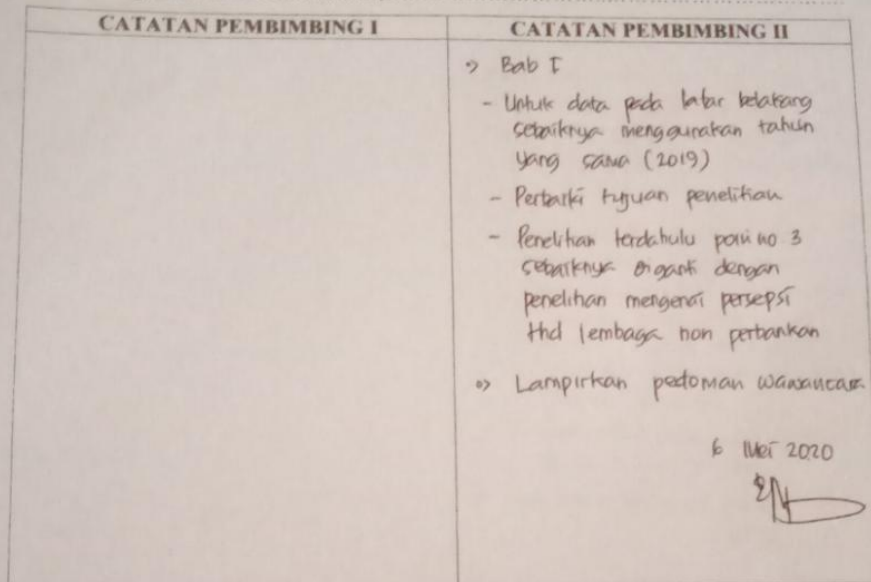 CATATAN PEMBIMBING I
CATATAN PEMBIMBING II
Bab I
- Untuk data pada latar belakang
sebaiknya menggunakan tahun
yang sama (2019)
- Perbaiki tujuan penelitian
- Penelitian terdahulu poin no 3
sebaiknya diganti dengan
penelitian mengenai persepsi
thd lembaga non perbankan
Lampirkan pedoman wawancara
6 Mei 2020